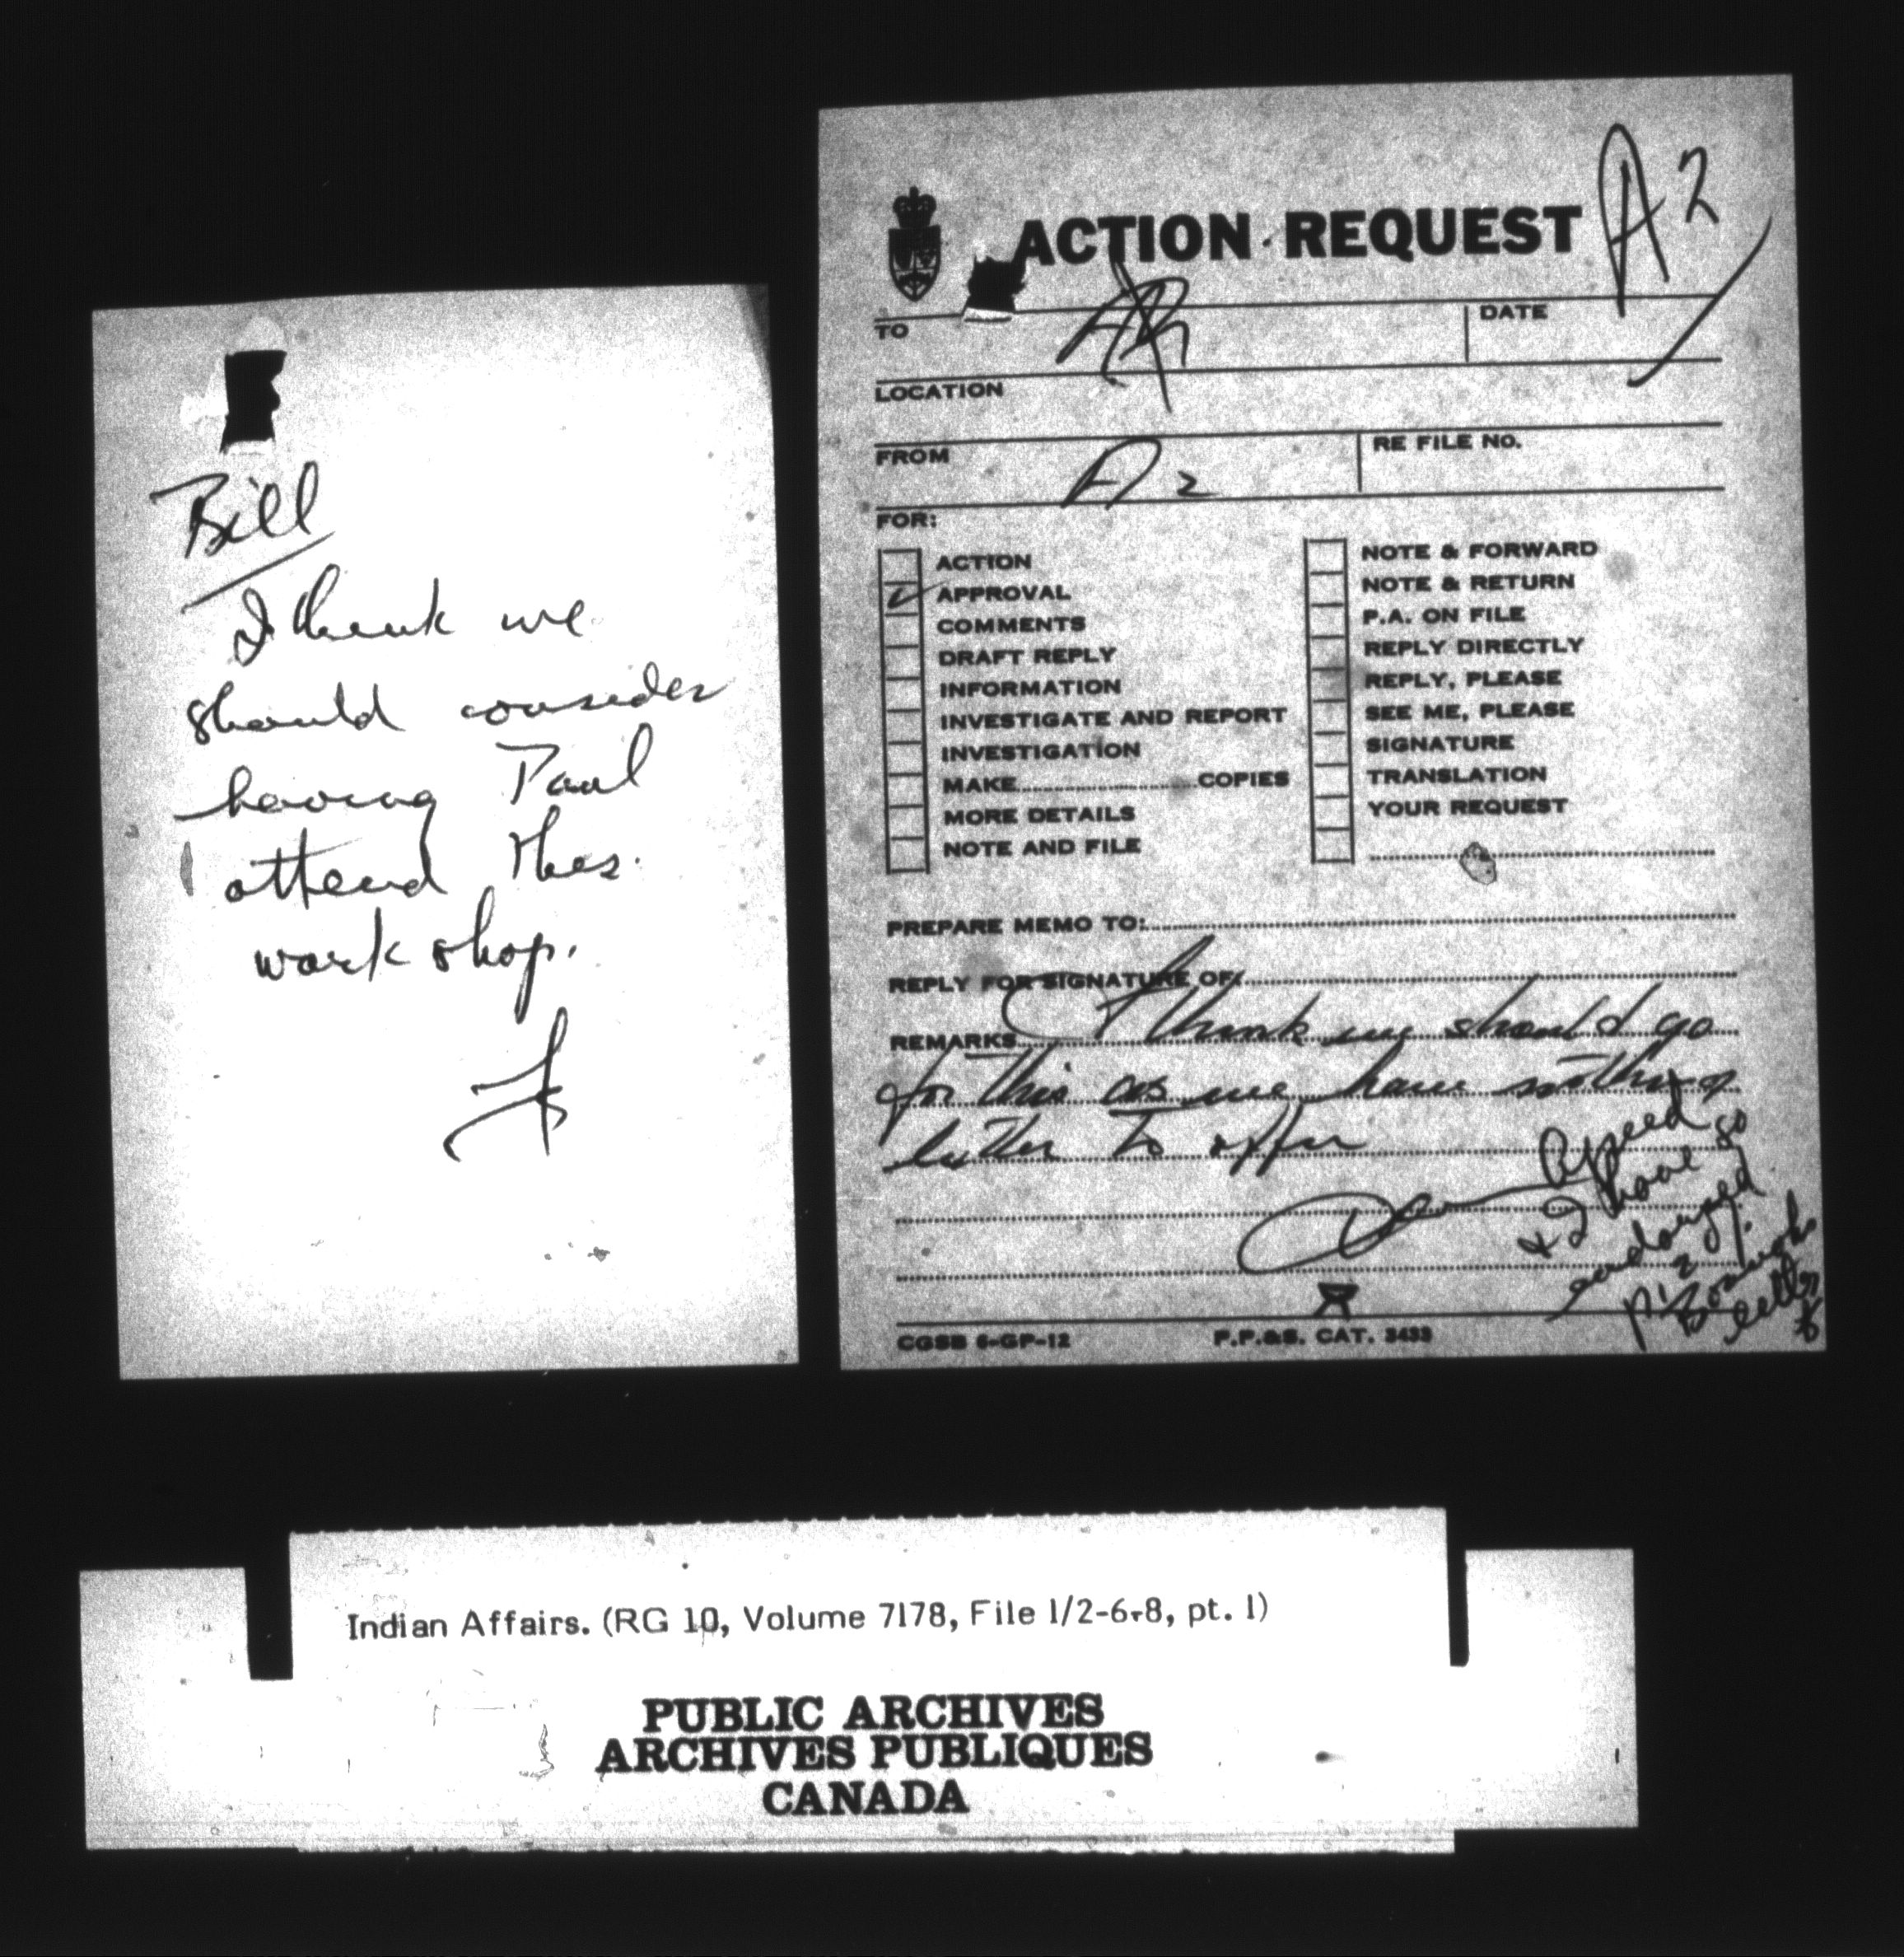 Bill
I think we
should consider
having Paul
attend this
work shop.
ACTION REQUEST
A2
TO
DATE
LOCATION
FROM A2
RE FILE NO.
FOR:
ACTION
APPROVAL
COMMENTS
DRAFT REPLY
INFORMATION
INVESTIGATE AND REPORT
INVESTIGATION
MAKE..............................COPIES
MORE DETAILS
NOTE AND FILE
NOTE & FORWARD
NOTE & RETURN
P.A. ON FILE
REPLY DIRECTLY
REPLY, PLEASE
SEE ME, PLEASE
SIGNATURE
TRANSLATION
YOUR REQUEST
PREPARE MEMO TO:
REPLY FOR SIGNATURE OF:
REMARKS I think we should go
for this as we have nothing
better to offer
Agreed
& I have so
endorsed
p. 2 of
letter
CGSB 6-GP-12
P.P.&S. CAT. 3433
Indian Affairs. (RG 10, Volume 7178, File 1/2-6-8, pt. 1)
PUBLIC ARCHIVES
ARCHIVES PUBLIQUES
CANADA